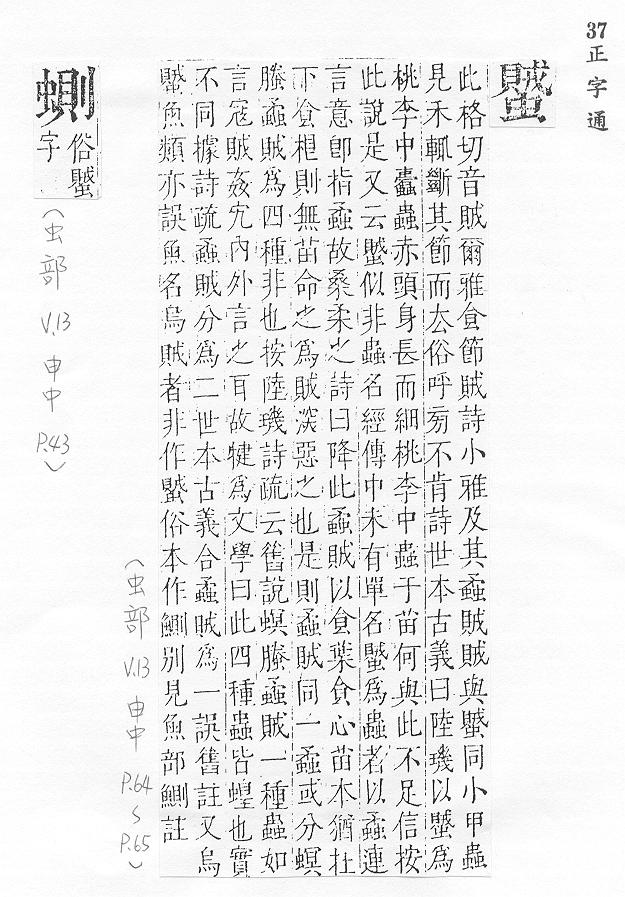 37正字通
蠈
此格切音賊爾雅食節賊詩小雅及其蟊賊賊與蠈同小甲蟲
見禾輒斷其節而去俗呼剪不肯詩世本古義曰陸璣以蠈為
桃李中蠹蟲赤頭身長而細桃李中蟲于苗何與此不足信按
此說是又云蠈似非蟲名經傳中未有單名蠈為蟲者以蟊連
言意卽指蟊故桑柔之詩曰降此蟊賊以食葉食心苗本猶在
下食根則無苗命之為賊深惡之也是則蟊賊同一蟊或分螟
螣蟊賊為四種非也按陸璣詩疏云舊說螟螣蟊賊一種蟲如
言寇賊姦宄內外言之耳故犍為文學曰此四種蟲皆蝗也實
不同據詩疏蟊賊分為二世本古義合蟊賊為一誤舊註又烏
蠈魚類亦誤魚名烏賊者非作蠈俗本作鰂別見魚部鰂註
(虫部 V.13 申中 P.64~P.65)
俗蠈
字
(虫部 V.13 申中 P.43)